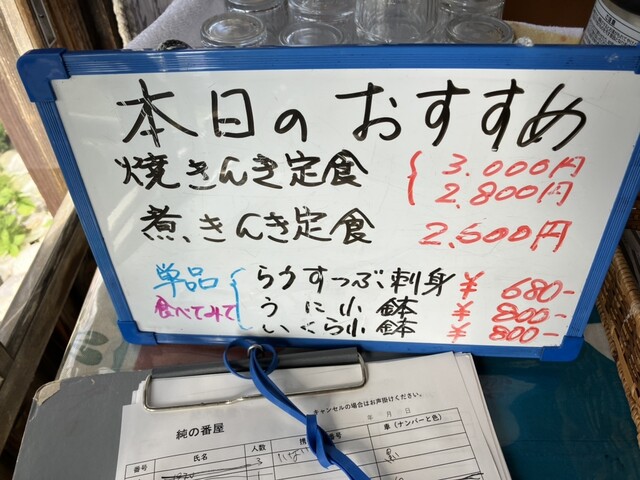 本日のおすすめ
焼きんき定食 3.000円
2.800円
煮きんき定食 2.500円
単品 らうすつぶ刺身 ¥680-
食べてみて うに小鉢 ¥800-
いくら小鉢 ¥800-
キャンセルの場合はお声掛けください。
純の番屋
年 月 日
番号 氏名 人数 車(ナンバーと色)